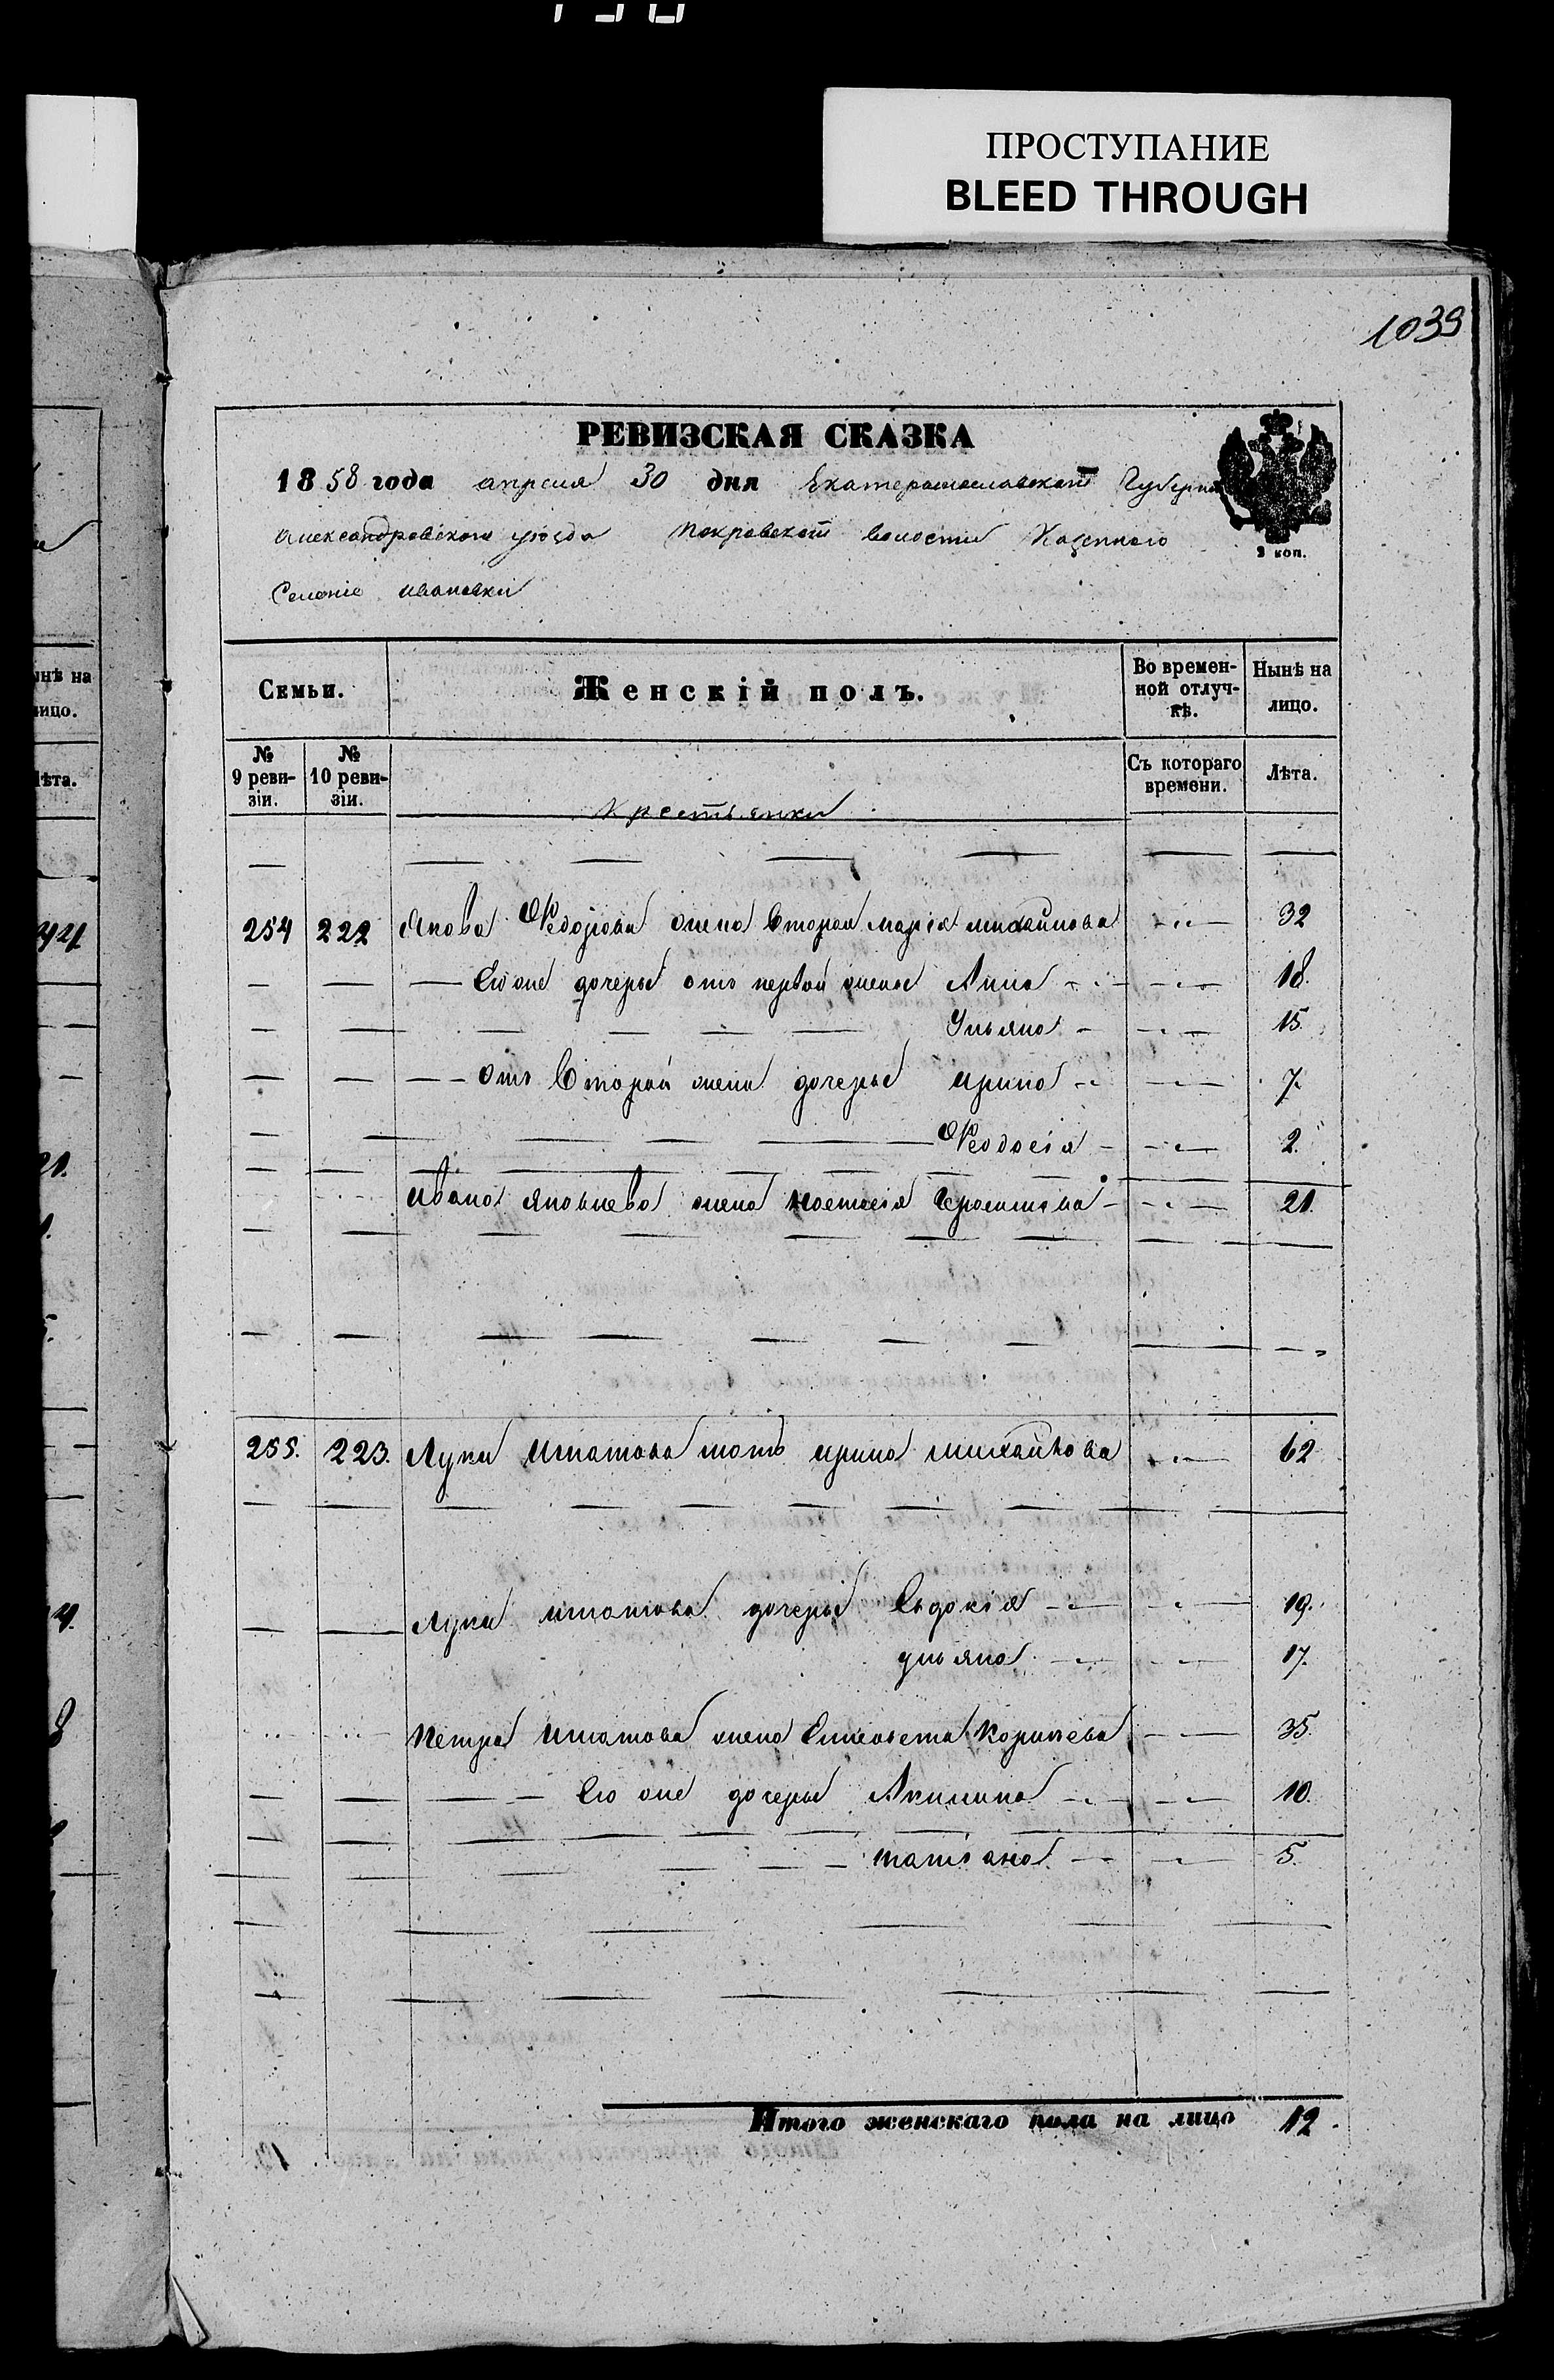 ПРОСТУПАНИЕ
BLEED THROUGH
1039
РЕВИЗСКАЯ СКАЗКА
1858 года апреля 30 дня Екатеринославской Губернии
Александровского уѣзда Покровской волости Казенного
Селеніе Ивановки
2 коп.
Семьи. Женскій полъ. Во временной отлучкѣ. Нынѣ на лицо.
№ 9 ревизіи. № 10 ревизіи. Съ котораго времени. Лѣта.
Крестьянки
254 222 Якова Федорова жена вторая Марія Михайлова 32
Его же дочеры отъ первой жены Анна 18.
Ульяна 15.
отъ Второй жены дочеры Ирина 7.
Феодосія 2.
Ивана Яковлева жена Настасія Герасимова 21.
255. 223. Луки Игнатова мать Ирина Михайлова 62
Луки Игнатова дочеры Евдокія 19.
Ульяна 17.
Петра Игнатова жена Елисавета 35.
Его же дочеры Акилина 10.
Татьяна 5.
Итого женскаго пола на лицо 12.